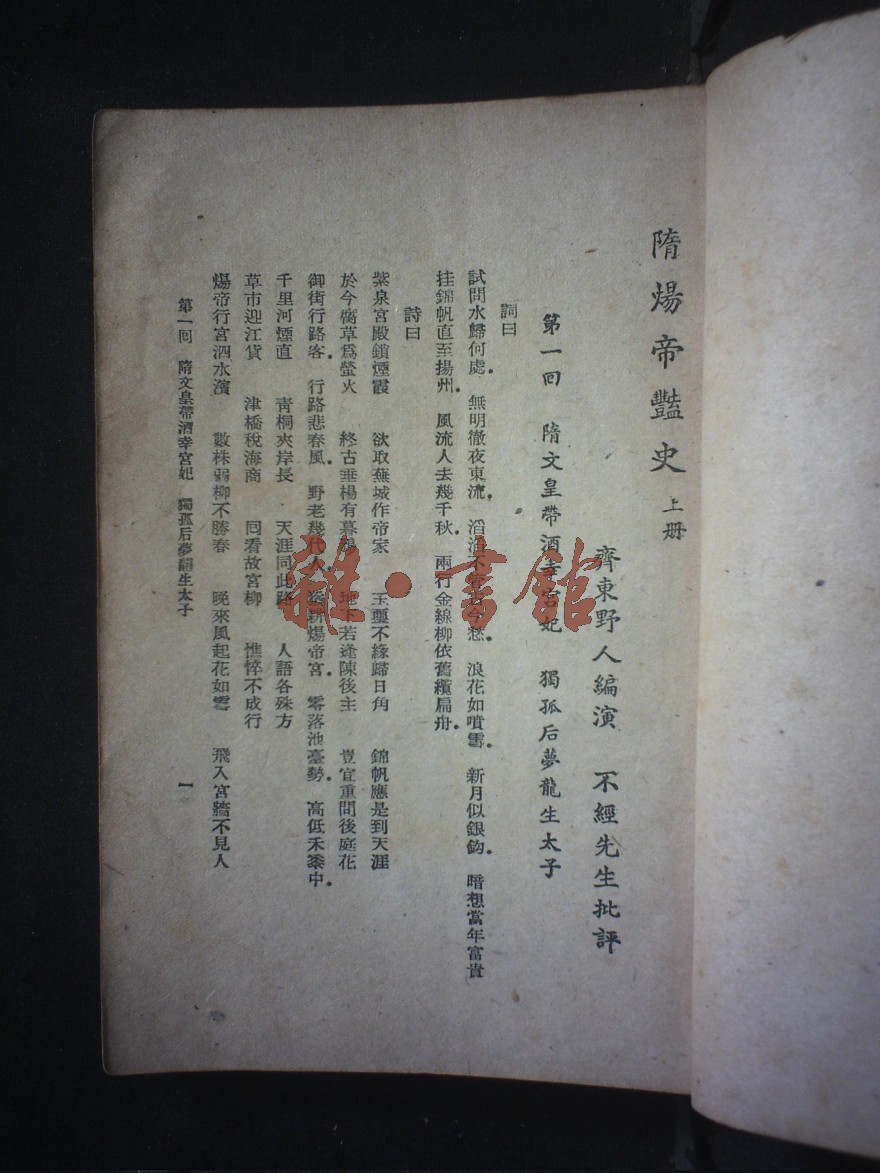 隋煬帝豔史 上册
齊東野人編演　不經先生批評
第一回　隋文皇帶酒幸宮妃　獨孤后夢龍生太子
詞曰
試問水歸何處。無明徹夜東流。滔滔不管古今愁。浪花如噴雪。新月似銀鈎。暗想當年富貴
挂錦帆直至揚州。風流人去幾千秋。兩行金線柳依舊纜扁舟。
詩曰
紫泉宮殿鎖煙霞　欲取蕪城作帝家　玉璽不緣歸日角　錦帆應是到天涯
於今腐草爲螢火　終古垂楊有暮鴉　地下若逢陳後主　豈宜重問後庭花
御街行路客。行路悲春風。野老幾代人。猶耕煬帝宮。零落池臺勢。高低禾黍中。
千里河煙直　青桐夾岸長　天涯同此路　人語各殊方
草市迎江貨　津橋稅海商　回看故宮柳　憔悴不成行
煬帝行宮泗水濱　數株弱柳不勝春　晚來風起花如雪　飛入宮牆不見人
第一回　隋文皇帶酒幸宮妃　獨孤后夢龍生太子　一
雜·書館